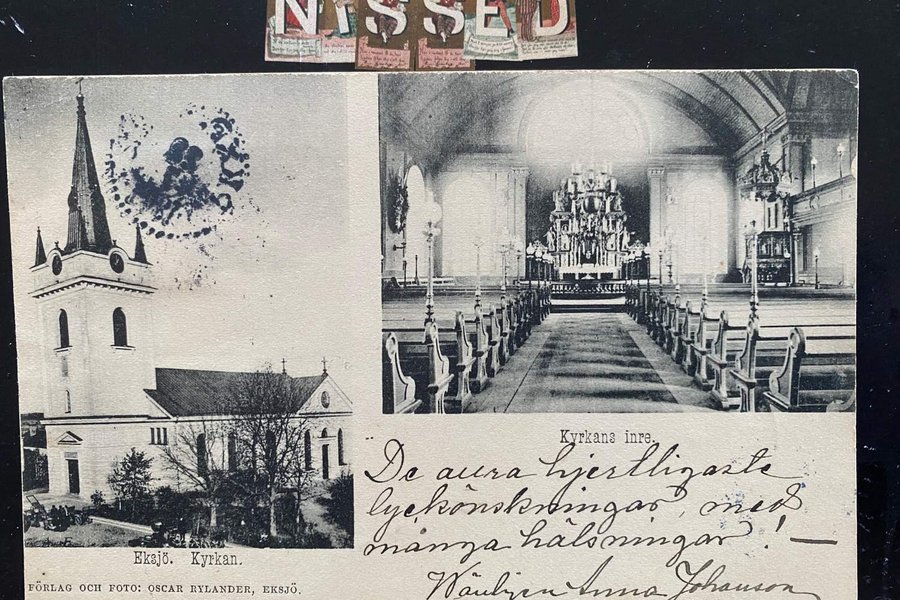 NISSED
Kyrkans inre.
De allra hjertligaste
lyckönskningar, med
många hälsningar! —
Anna Johanson
Eksjö. Kyrkan.
FÖRLAG OCH FOTO: OSCAR RYLANDER, EKSJÖ.